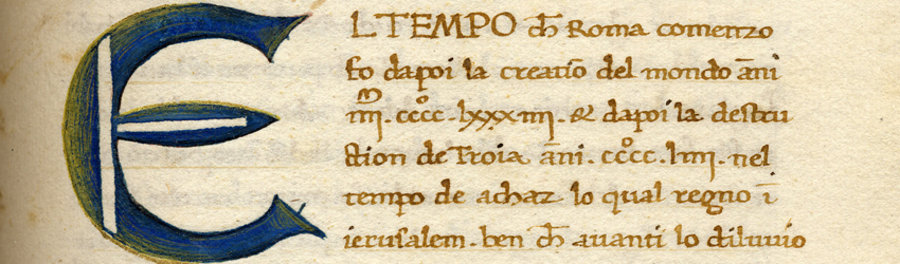 EL TEMPO ch̄ Roma comenzo
fo dapoi la creatiō del mondo āni
iiii.ͫ ccccͦ. lxxxiiii. & dapoi la destru
ction de Troia āni. ccccͦ. liiii. nel
tempo de achaz lo qual regno ī
ierusalem. ben ch̄ auanti lo diluuio